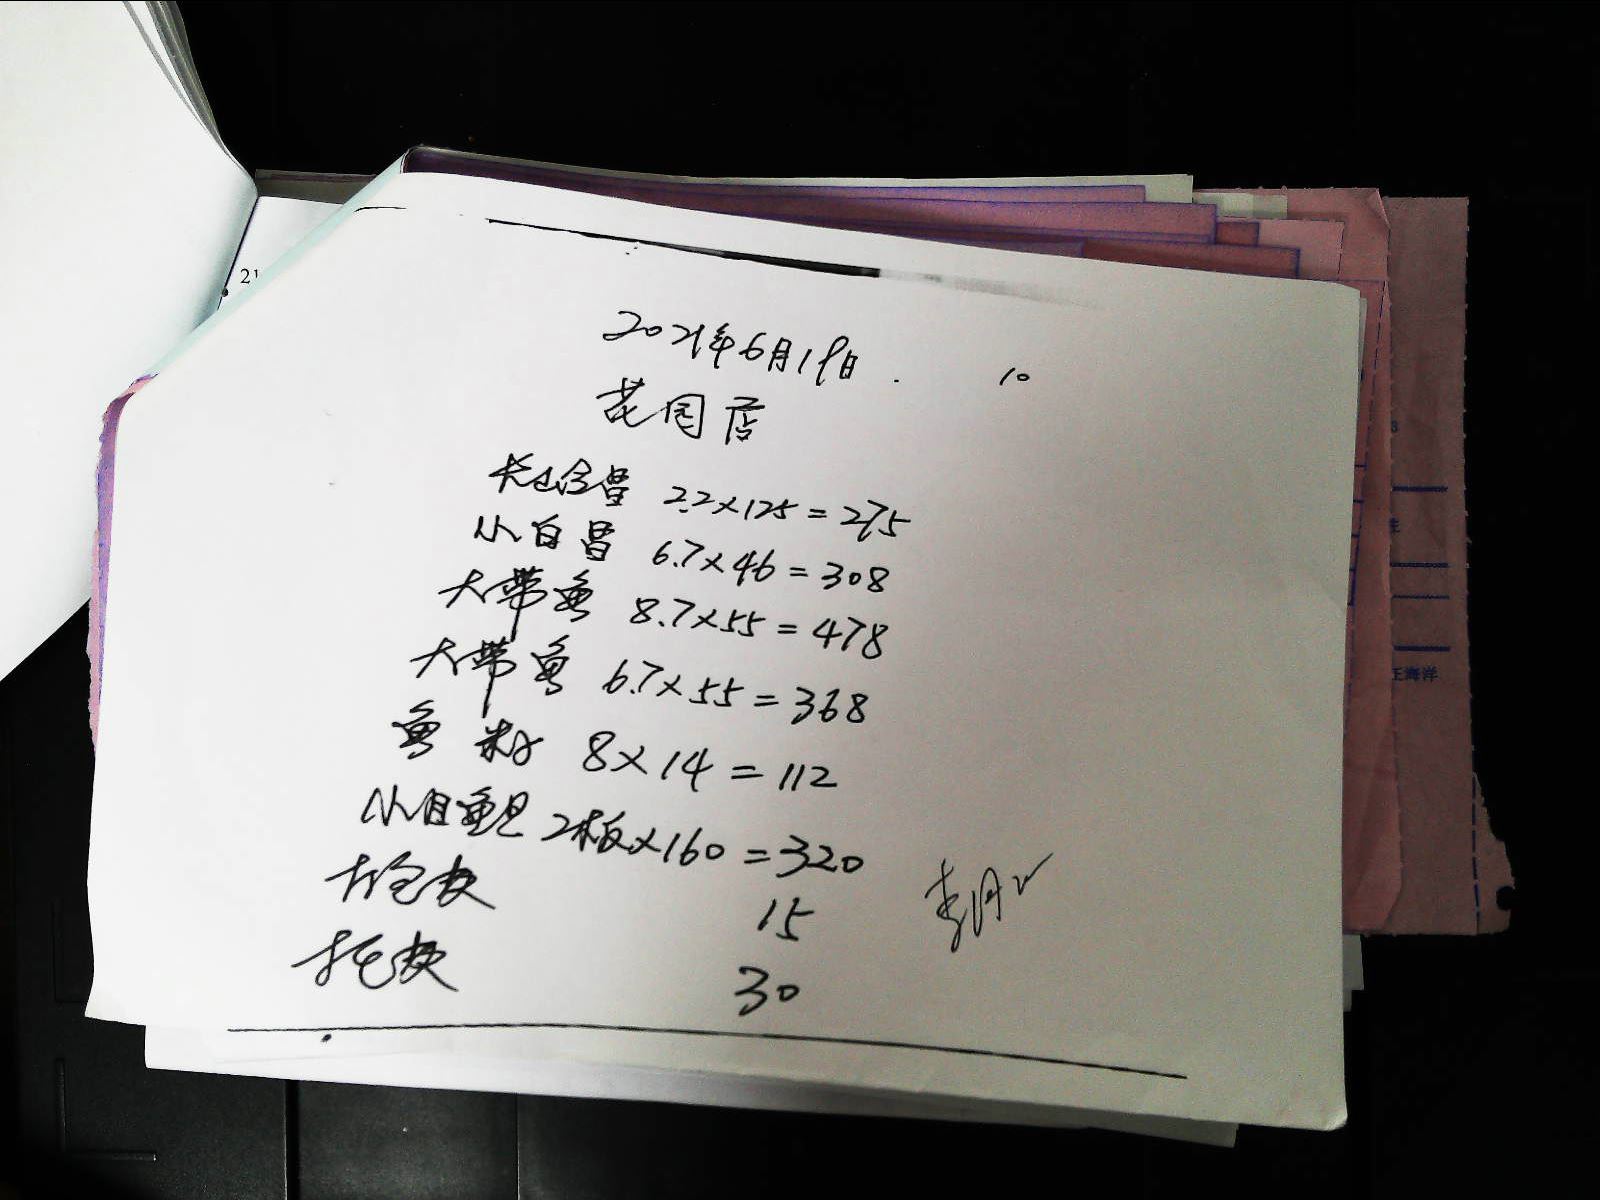 21
2021年6月19日. 10
花园店
2.2×125=275
小白昌 6.7×46=308
大带鱼 8.7×55=478
大带鱼 6.7×55=368
鱼粉 8×14=112
2板×160=320
15
30
王海洋